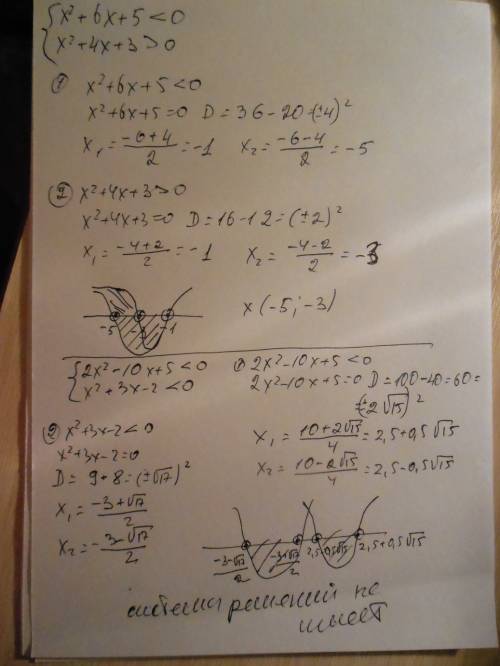 { x² + 6x + 5 < 0
{ x² + 4x + 3 > 0
① x² + 6x + 5 < 0
x² + 6x + 5 = 0 D = 36 - 20 = (±4)²
x₁ = (-6+4)/2 = -1 x₂ = (-6-4)/2 = -5
② x² + 4x + 3 > 0
x² + 4x + 3 = 0 D = 16 - 12 = (±2)²
x₁ = (-4+2)/2 = -1 x₂ = (-4-2)/2 = -3
x (-5; -3)
-5 -3 -1
{ 2x² - 10x + 5 < 0
{ x² + 3x - 2 < 0
① 2x² - 10x + 5 < 0
2x² - 10x + 5 = 0 D = 100 - 40 = 60 =
= (±2√15)²
x₁ = (10+2√15)/4 = 2,5 + 0,5√15
x₂ = (10-2√15)/4 = 2,5 - 0,5√15
② x² + 3x - 2 < 0
x² + 3x - 2 = 0
D = 9 + 8 = (±√17)²
x₁ = (-3+√17)/2
x₂ = (-3-√17)/2
(-3-√17)/2 (-3+√17)/2 2,5-0,5√15 2,5+0,5√15
система решений не
имеет